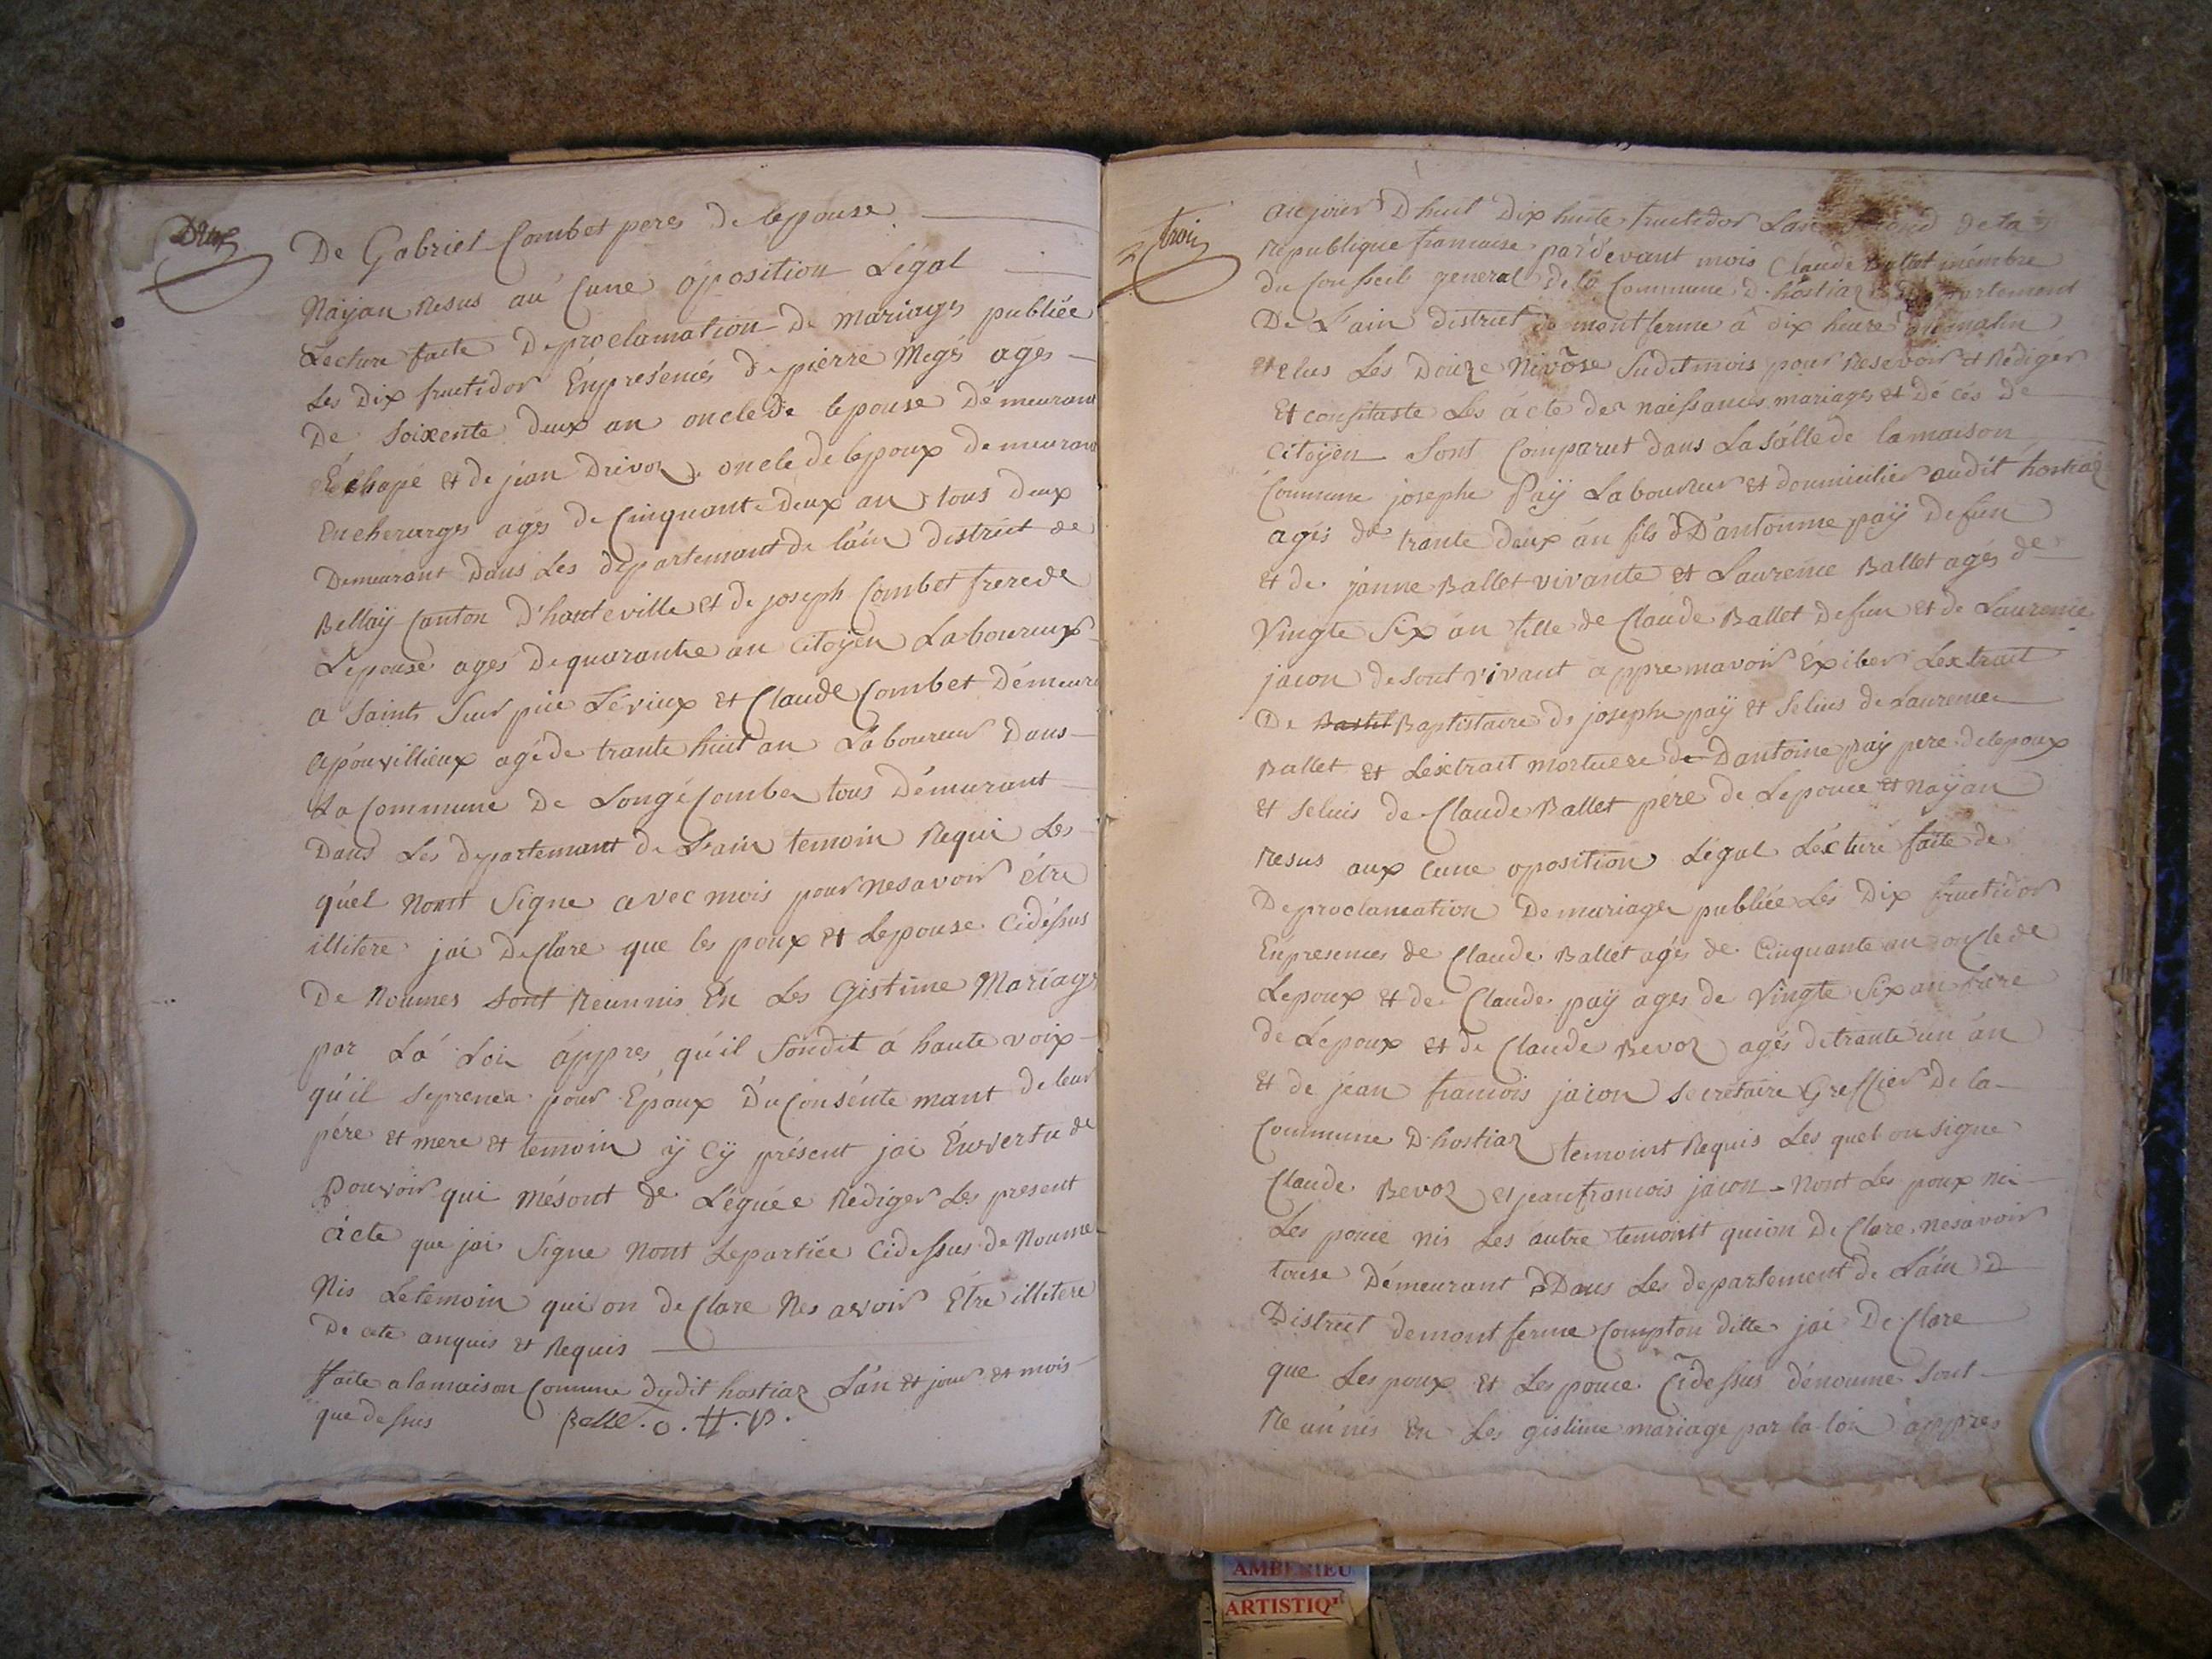 Deux
De Gabriel Combet peres de lepouse
Nayan Resus au Cune oposition Légal
Lecture faite De proclamation de mariages publiée
Les Dix fructidor Enpresences de pierre Megés agés
De soixente deux an oncle de lepouse Démeurant
et de jean Drivoz oncle de lepoux demeurant
agés de Cinquante deux an tous deux
Demeurant Dans Les departemant de l'ain district de
Bellaÿ Canton d'hauteville et de joseph Combet frere de
L'epouse agés de quarante an Citoÿen Laboureux
a Saint Sur Combet Démeure
agé de trante huit an Laboureur Dans
La Commune De Longecombe tous Démurant
Dans Les departemant de L'ain temoin Requi Les
quél nont Signe avec mois pour nesavoir étre
illitere jai Declare que les poux et Lepouse Cidéssus
De Noumes Sont Réunnis En Les Gistime Mariage
par La Loi áppres qu'il Sondit á haute voix
qu'il seprenea pour Époux Du Consénte mant de leur
pére et mere et temoin ÿ Cÿ présent jai Énvertu de
Pouvoir qui mésont de Léguée Rediger Les present
ácte que jai Signe Nont Lepartiée Cidessus de Noume
Nis Letemoin qui on de Clare Nes avoir Étre illitere
De cete anquis et Requis
faite a lamaison Comune dudit hostiaz L'an et jour et mois
que dessus Balle. o. tt. p.
trois
aujour D huit Dix huite fructidor Lan second de la
Republique francaise par devant mois Claude Ballet mémbre
du Conseil general De la Commune D. hostiaz Departement
De L'ain district de montferme á dix heure du matin
et elus Les Douze Nivôse Suditmois pour Resevoir et Rédiger
Et constaste Les ácte des naissances mariages et dé cés De
Citoÿen Sont Comparut dans La Sálle de lamaison
Commune josephe Paÿ Laboureur et doumicilier audit hostiaz
agés de trante deux an fils d'D'antoinne paÿ Defun
et de janne Ballet vivante et Laurence Ballet agés de
Vingte Six an fille de Claude Ballet Defun et de Laurence
jacon desont vivant appre mavoir Éxiber Lextrait
De Bastit Baptistaire de josephe paÿ et Seluis de Laurence
Ballet et Léxtrait mortuere de Dantoine paÿ pere delepoux
et Seluis de Claude Ballet pére de Lepouce et Naÿan
Resus aux Cune oposition Légal Léxture faite de
Deproclamation De mariage publiée Les Dix fructidor
Enpresences de Claude Ballet agés de Cinquante an oncle de
Lepoux et de Claude paÿ ages de Vingte Six an frere
de Lépoux et de Claude Bevoz agés de trante un an
et de jean francois jacon Secretaire Greffier De la
Commune D. hostiaz temoint Requis Les quel on Signe
Claude Bevoz et jeanfrancois jacon Nont Les poux ni
Les pouce nis Les autre temoint quion De Clare nesavoir
touse Démeurant D Dans Les departement de L'ain D
District demontferme Compton ditte jai De Clare
que Les poux et Les pouce Cidessus dénoume Sont
Reúnnis En Les gistime mariage par la loi appres
AMBERIEU
ARTISTIQ